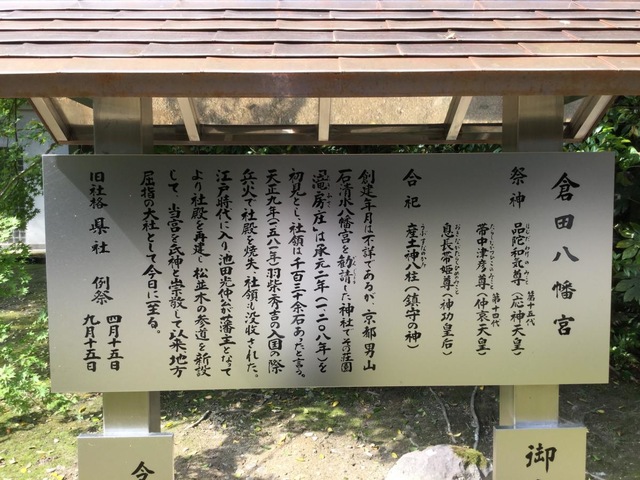 倉田八幡宮
祭神 品陀和気尊(応神天皇)第十五代
帯中津彦尊(仲哀天皇)第十四代
息長帯姫尊(神功皇后)
合祀 産土神八柱(鎮守の神)
創建年月は不詳であるが、京都男山
石清水八幡宮を勧請した神社でその荘園
は承元二年(一二〇八年)を
初見とし、社領は千百三十余石あったと言う。
天正九年(一五八一年)羽柴秀吉の入国の際
兵火で社殿を焼失、社領も没収された。
江戸時代に入り池田光仲公が藩主となって
より社殿を再建し松並木の参道を新設
して、当宮を氏神と崇敬して以来地方
屈指の大社として今日に至る。
旧社格 県社 例祭 四月十五日
九月十五日
御
令